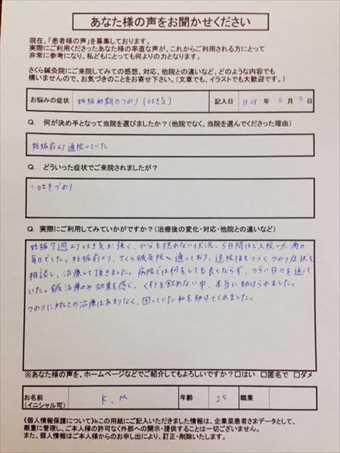 あなた様の声をお聞かせください
現在、「患者様の声」を募集しております。
実際にご利用くださったあなた様の率直な声が、これからご利用される方にとって
非常に参考になり、私どもにとっても何よりの力となります。
さくら鍼灸院にご来院してみての感想、対応、他院との違いなど、どのような内容でも
構いませんので、お気づきのことをお寄せ下さい。(文章でも、イラストでも大歓迎です。)
お悩みの症状 妊娠初期のつわり(はき気) 記入日
Q. 何が決め手となって当院を選びましたか?(他院でなく、当院を選んでくださった理由)
妊娠前より通院していた
Q. どういった症状でご来院されましたか?
Q. 実際にご利用してみていかがですか?(治療後の変化・対応・他院との違いなど)
妊娠7週よりはき気が強く、水分も摂れない状況、5日間ほど入院し、点滴の
毎日でした。妊娠前より、さくら鍼灸院へ通っており、退院後もつづくつわり症状を
相談し、治療して頂きました。病院では何をしても良くならず、つらい日々を送って
いた。鍼治療の効果を感じ、くすりを飲めない中、本当に助けられました。
つわりに対しての治療はあまりなく、困っていた私を助けてくれました。
※あなた様の声を、ホームページなどでご紹介してもよろしいですか?□はい □匿名で □ダメ
お名前 K.M 年齢 25 職業
(イニシャル可)
《個人情報保護について》※この用紙にご記入いただきました情報は、企業並患者さまデータとして、
厳重に管理し、ご本人様の許可なく外部への開示・提供することは一切ございません。
また、個人情報はご本人様からのお申し出により、訂正・削除いたします。